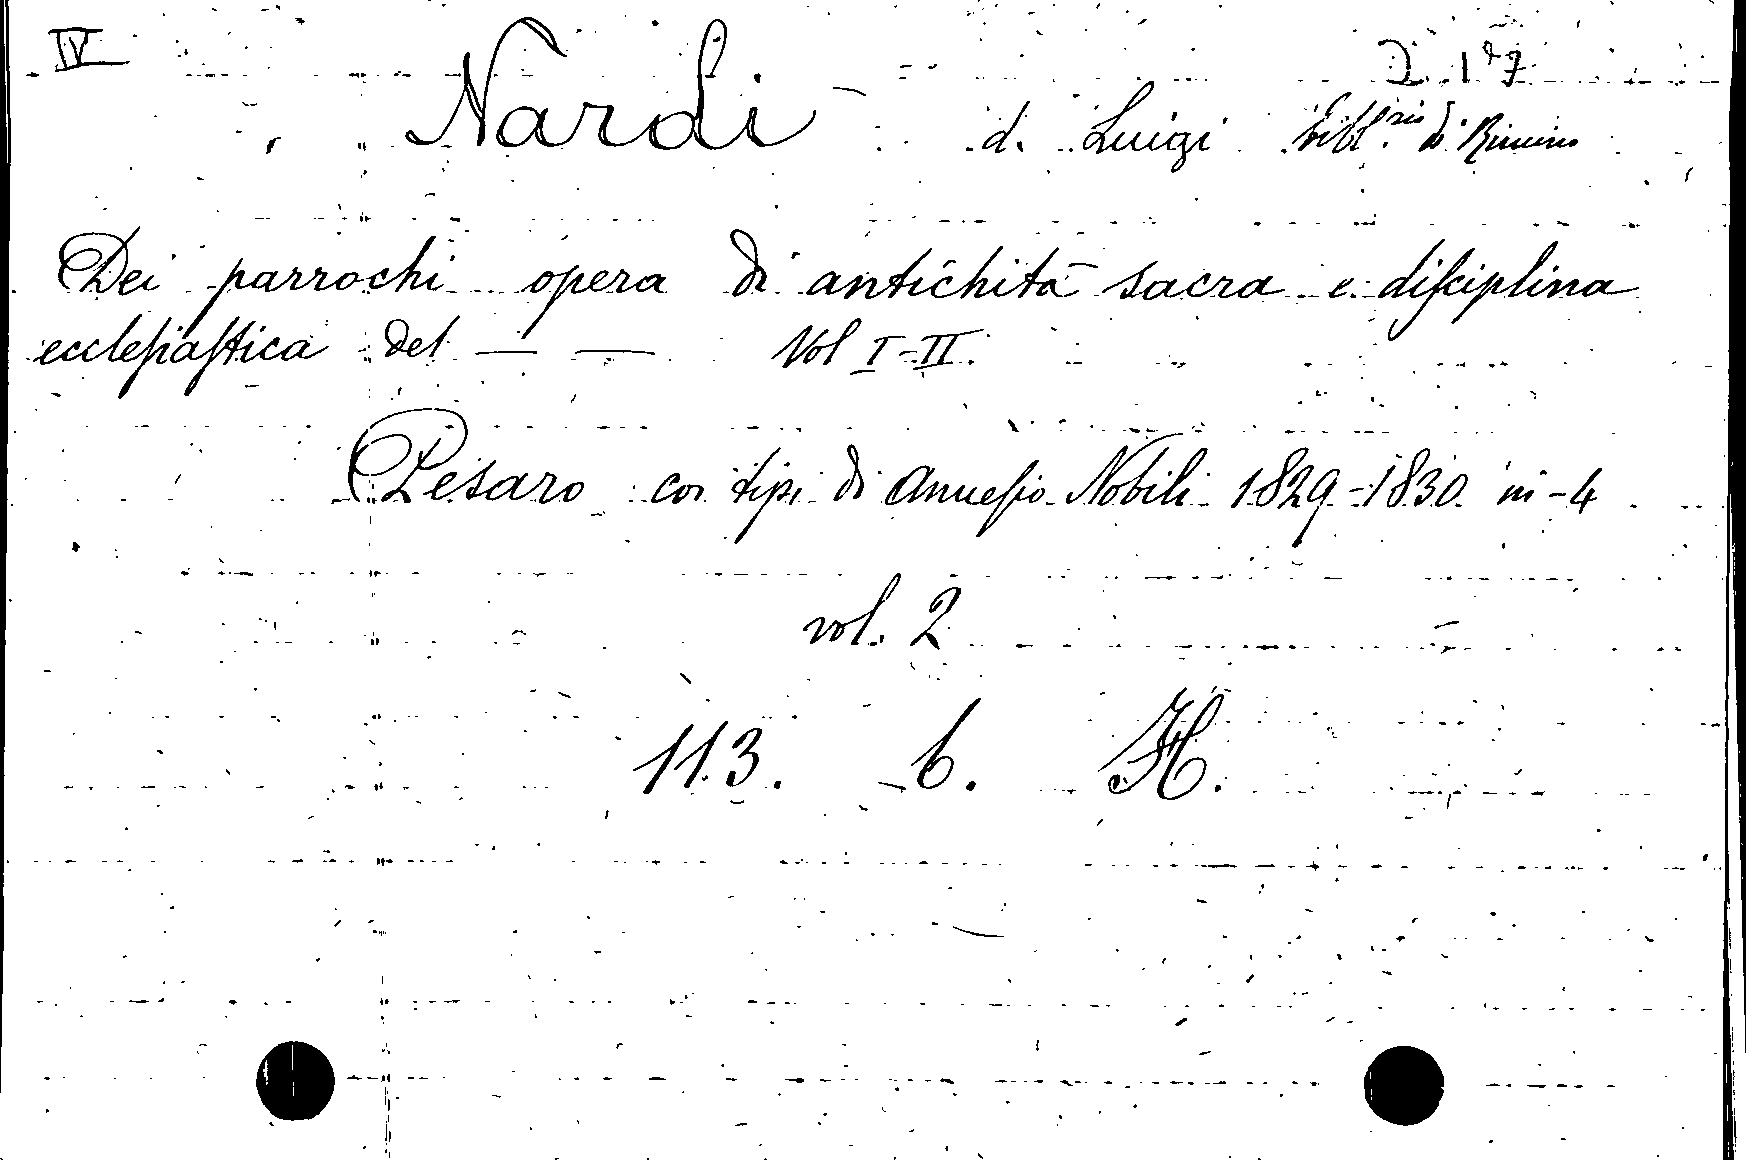 IV
Nardi d. Luigi bibl.rio di Rimini
Dei parrochi opera di antichità sacra e disciplina
ecclesiastica del — — Vol I-II.
Pesaro coi tipi di Annesio Nobili 1829-1830. in-4
vol. 2
113. b. H.